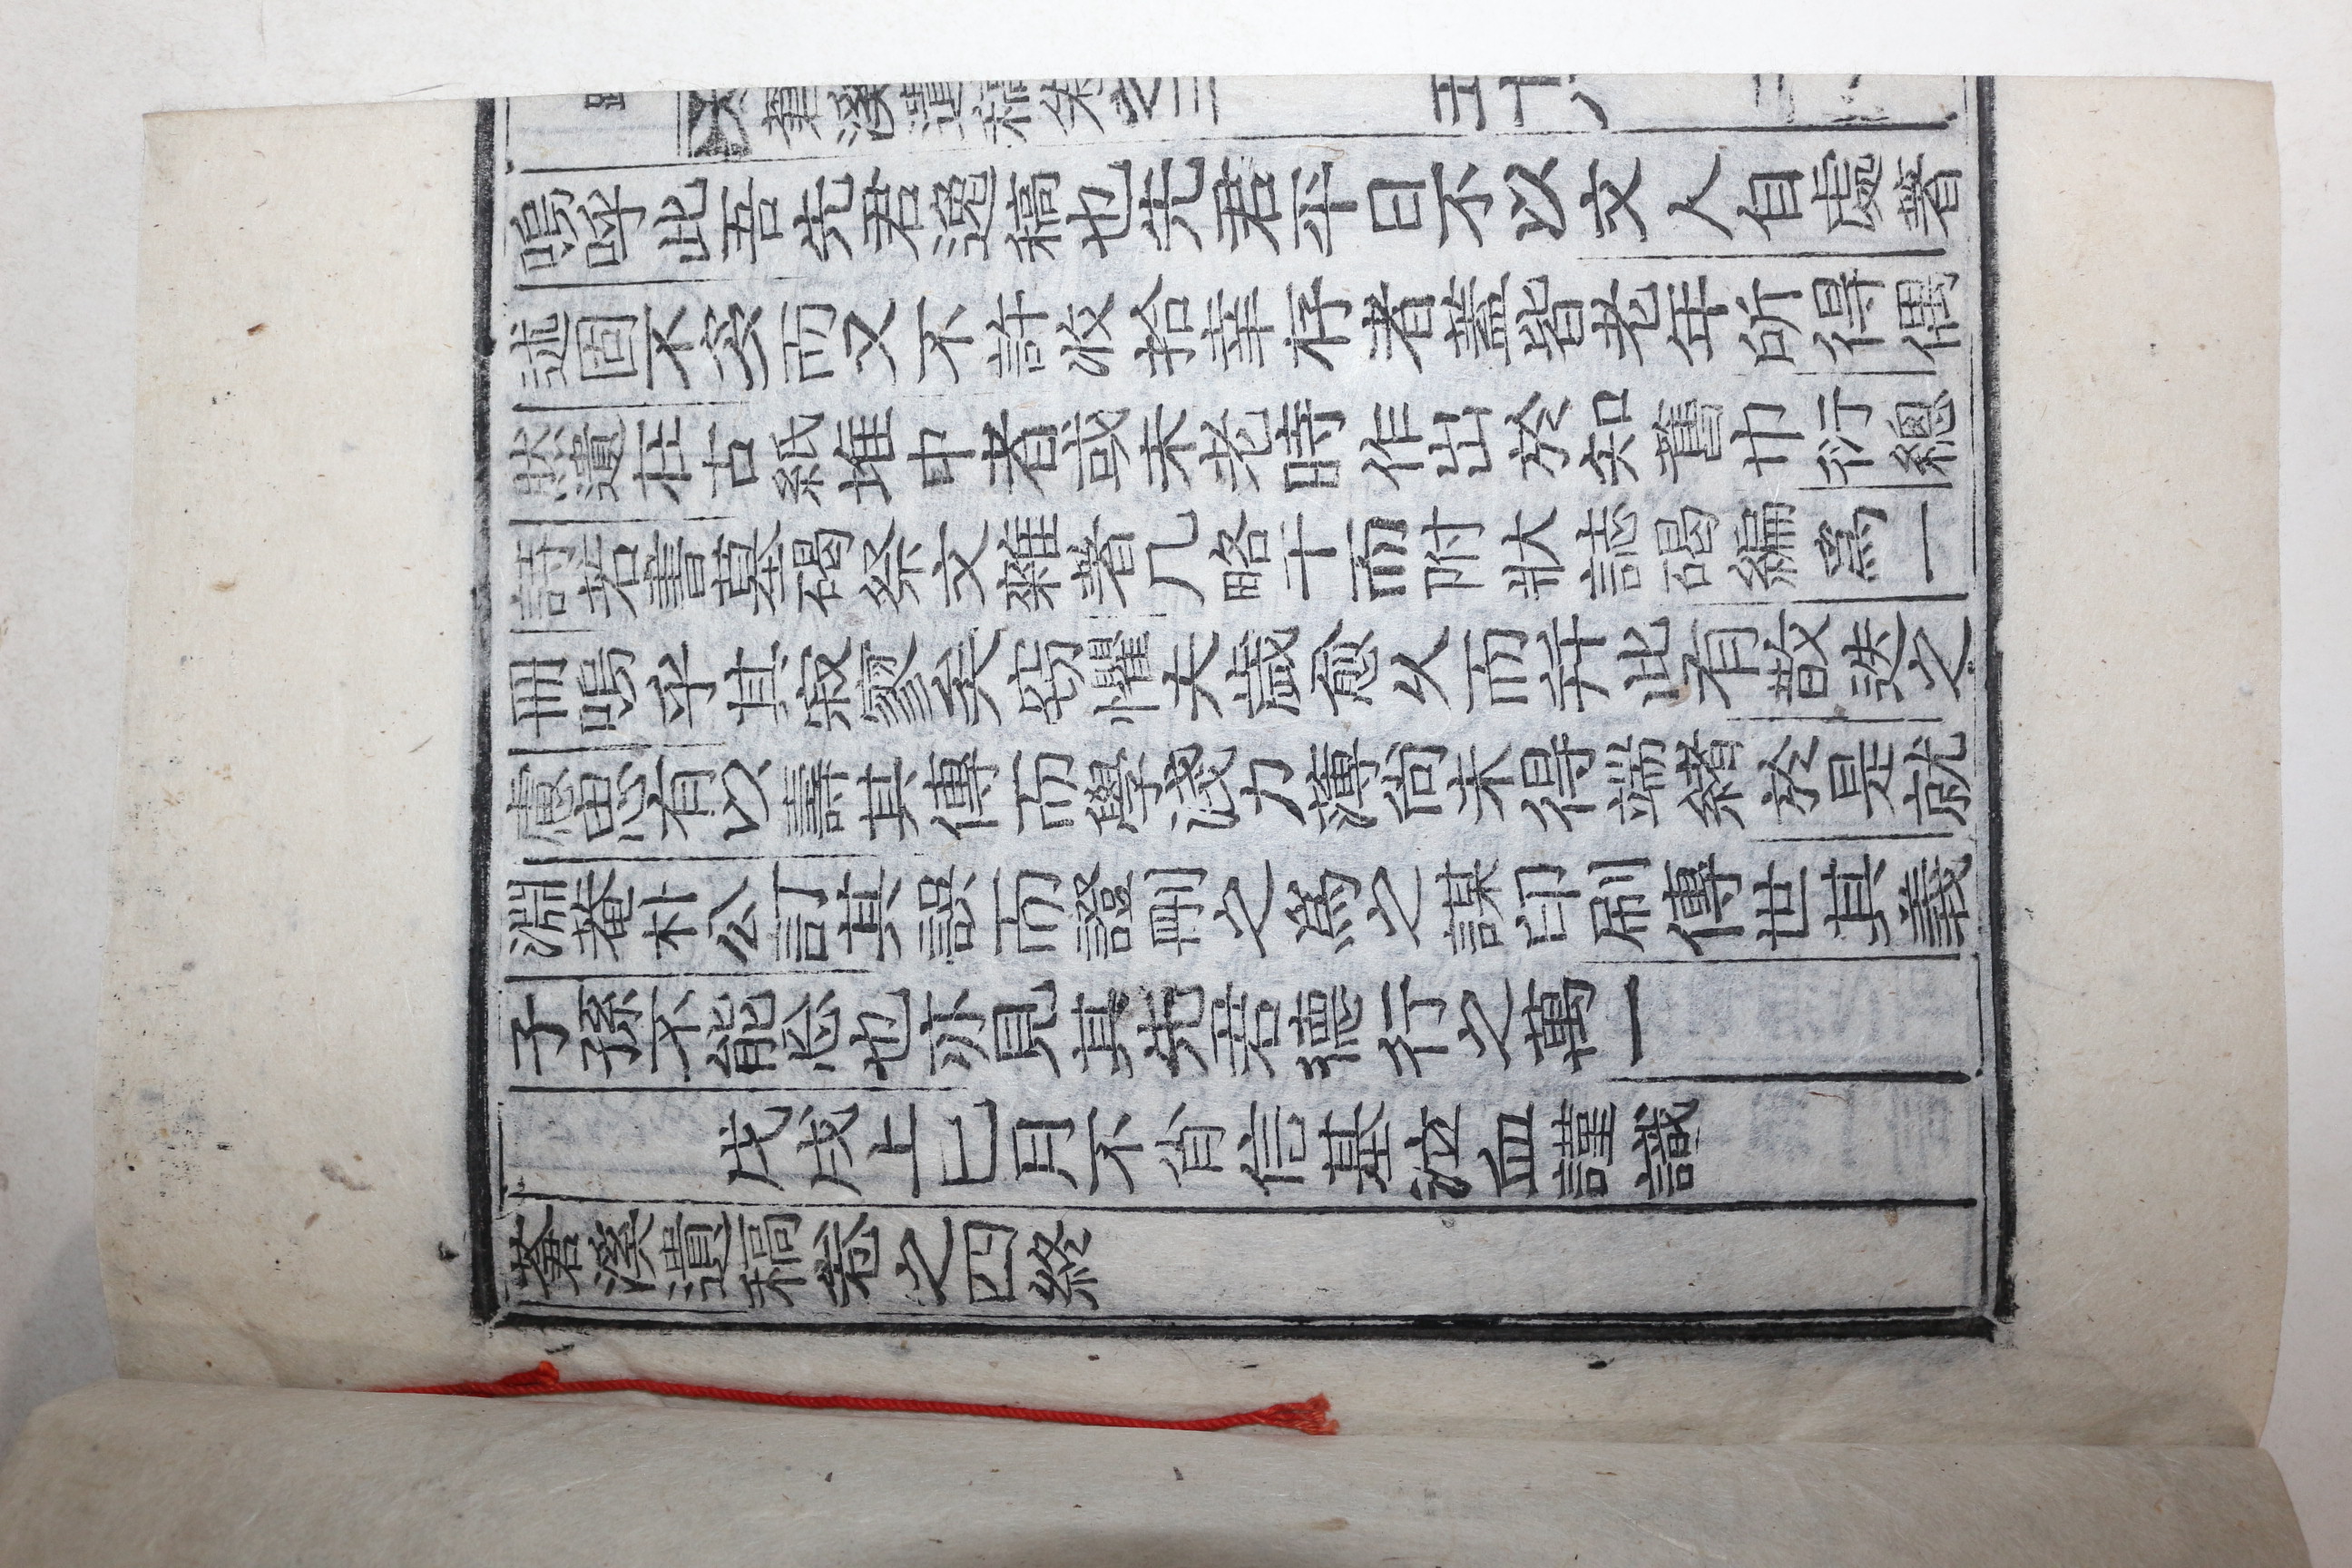 嗚呼此吾先君遺稿也先君平日不以文人自處著
述固不多而又不許收拾幸存者蓋皆老年所得僅
失遺在古紙堆中者或未老時作出於知舊巾衍總
詩若書墓碣祭文雜著凡略干而附狀誌碣編爲一
冊嗚乎其寂寥矣竊懼夫歲愈久而幷此有散逸之
慮思有以壽其傳而學淺力薄尙未得端緖於是就
淵菴朴公訂其誤而證刪之爲之謀印刷傳世其義
子孫不能忘也亦見其先君德行之萬一
戊戌上巳月不肖信基泣血謹識
蒼溪遺稿卷之四終